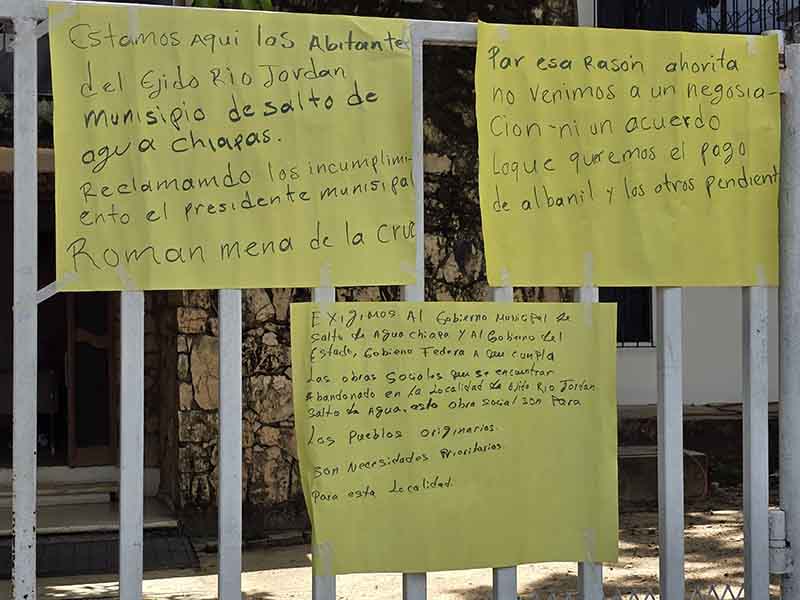 Estamos Aqui los Abitante
del Ejido Rio Jordan
munisipio de salto de
agua chiapas.
Reclamamdo los incumplimi-
ento el presidente munisipal
Roman mena de la cruz
Par esa Rason ahorita
no venimos a un negosia-
cion-ni un acuerdo
loque queremos el pago
de albanil y los otros pendient
EXIJIMOS Al Gobierno municipal de
Salto de Agua chiapa Y Al Gobierno del
Estado, Gobieno Federa A que cumpla
Las obras Sociales que se encontrar
Abandonado en la Localidad de Ejido Rio Jordan
Salto de Agua. esto obra social son Para
Los Pueblos originarios.
son Necesidades Prioritarios
Para esta Localidad.